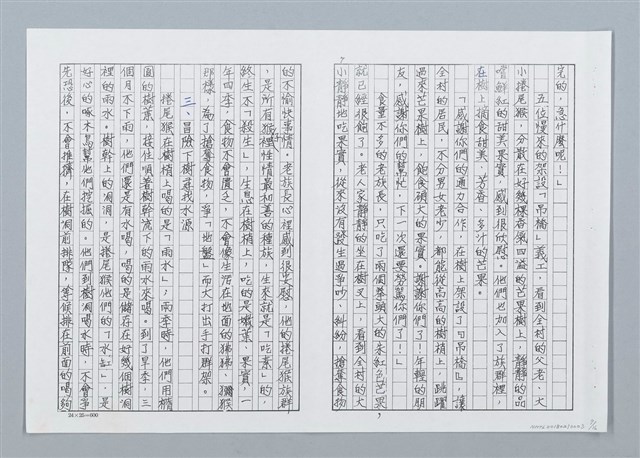 完的，急什麼呢！」
五位慢來的架設「吊橋」義工，看到全村的父老、大
小捲尾猴，分散在好幾棵香氣四溢的芒果樹上，靜靜的品
嚐鮮紅的甜美果實，感到很欣慰。他們也加入了族群裡，
在樹上摘食甜美、芳香、多汁的芒果。
「感謝你們的通力合作，在樹上架設了『吊橋』，讓
全村的居民，不分男女老少，都能從高高的樹梢上，跳躍
過來芒果樹上，飽食碩大的果實。謝謝你們了！年輕的朋
友，感謝你們的幫忙，下一次還要勞駕你們了！」
食量不多的老族長，只吃了兩個拳頭大的朱紅色芒果，
就已經很飽了。老人家靜靜的坐在樹叉上，看到全村的大
小靜靜地吃果實，從來沒有發生過爭吵、糾紛，搶奪食物
的不愉快事情。老族長心裡感到很安慰，他的捲尾猴族群
，是所有猴裡性情最和善的種族，生來就是「吃素」的，
終生不「殺生」，生息在樹梢上，吃的是嫩葉、果實，一
年四季，食物不會匱乏，不會像生活在地面的狒狒、獼猴
那樣，為了搶奪食物，爭「地盤」而大打出手打群架。
三、冒險下樹尋找水源
捲尾猴在樹梢上喝的是「雨水」，雨季時，他們用橢
圓的樹葉，接住順著樹幹流下的雨水來喝。到了旱季，三
個月不下雨，他們還是有水喝，喝的是儲存在好幾個樹洞
裡的雨水。樹幹上的凋洞，是捲尾猴他們的「水缸」，是
好心的啄木鳥幫他們挖掘的。他們到樹洞喝水時，不會爭
先恐後，不會推擠，在樹洞前排隊，等候排在前面的喝夠
24×25=600